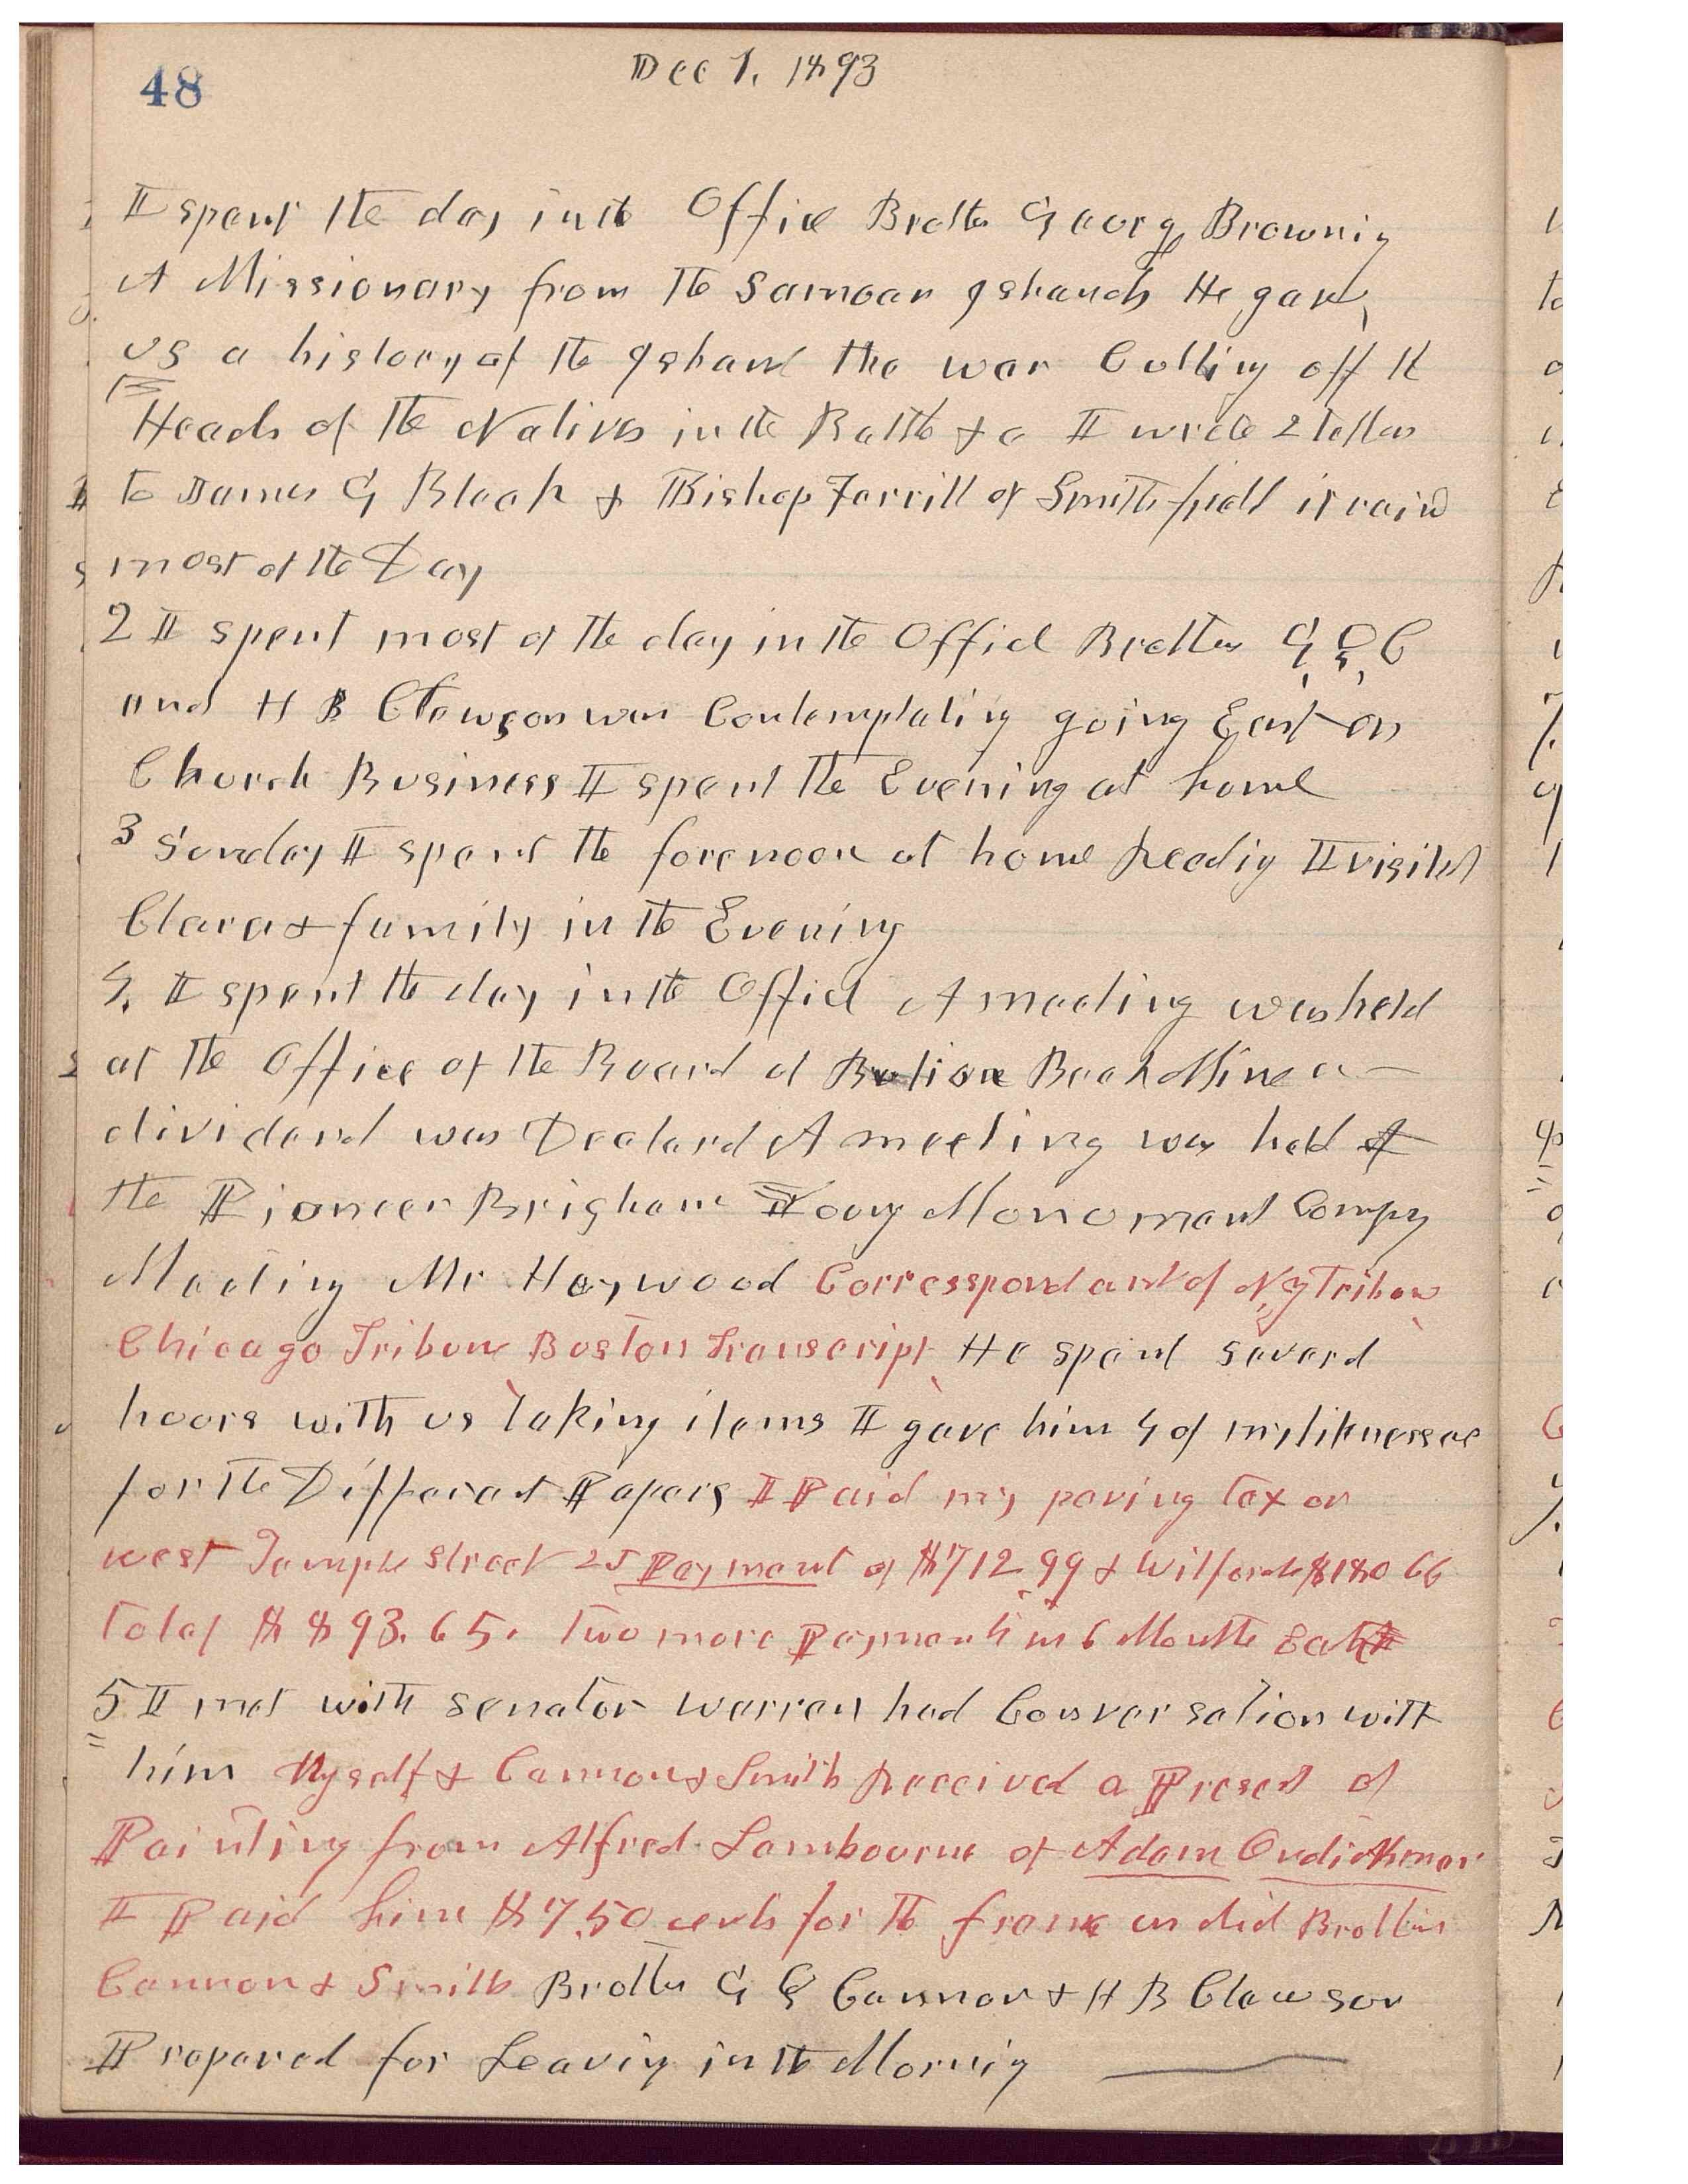 48
Dec 1, 1893
I spent the day in the Office Brother George Browning
A Missionary from the Samoan Islands He gave
us a history of the Island the war Cutting off the
Heads of the Natives in the Battle &c I wrote 2 letters
to James G Bleak & Bishop Farrill of Smithfield it raind
most of the Day
2 I spent most of the day in the Office Brother G Q C
and H B Clawson was Contemplating going East on
Church Business I spent the Evening at home
3 Sunday I spent the forenoon at home Reading I visited
Clara & family in the Evening
4. I spent the day in the Office A meeting was held
at the Office of the Board of Bulion Beck Mine a
dividend was Declared A meeting was held of
the Pioneer Brigham Young Monument Company
Meeting Mr Haywood Correspondant of NY Tribune
Chicago Tribune Boston Transcript He spent several
hours with us taking items I gave him 4 of my liknesses
for the Different Papers I Paid my paving tax on
west Temple Street 2d Payment of $712.99 & Wilfords $180 66
total $893.65. Two more Payments in 6 Months Each
5 I met with Senator Warren had Conversation with
him Myself & Cannon & Smith Received a Present of
Painting from Alfred Lambourne of Adam Ondi Ahman
I Paid him $7.50 cents for the frame as did Brothers
Cannon & Smith Brother G Q Cannon & H B Clawson
Prepared for Leaving in the Morning